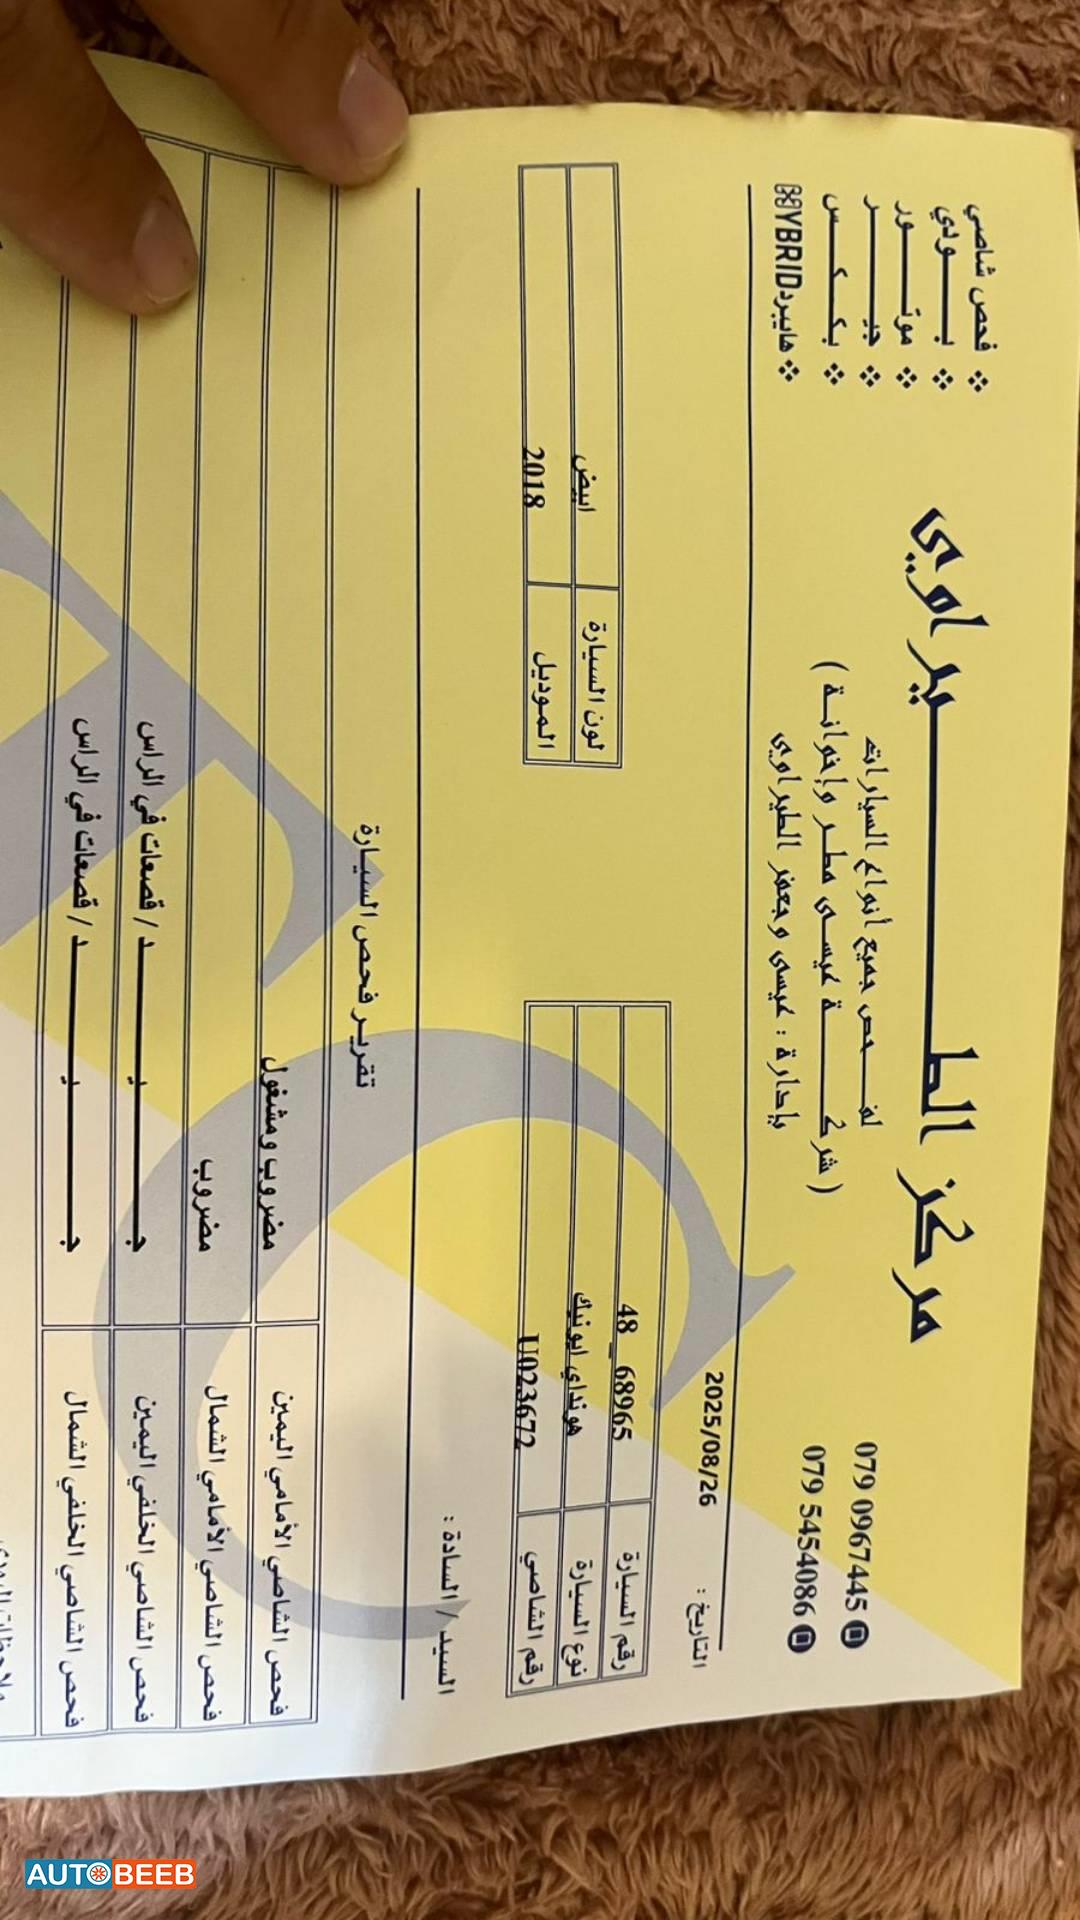 مركز الطيراوي
لفحص جميع أنواع السيارات
( شركة عيسى مطر وإخوانة )
بإدارة : عيسى وجعفر الطيراوي
079 0967445
079 5454086
❖ فحص شاصي
❖ بودي
❖ موتور
❖ جير
❖ بكس
❖ هايبرد HYBRID
التاريخ : 2025/08/26
رقم السيارة 48_68965
نوع السيارة هونداي ايونيك
رقم الشاصي U023672
لون السيارة ابيض
الموديل 2018
السيد / السادة :
تقرير فحص السيارة
فحص الشاصي الأمامي اليمين مضروب ومشغول
فحص الشاصي الأمامي الشمال مضروب
فحص الشاصي الخلفي اليمين جـــيـــد / قصعات في الراس
فحص الشاصي الخلفي الشمال جـــيـــد / قصعات في الراس
AUTOBEEB